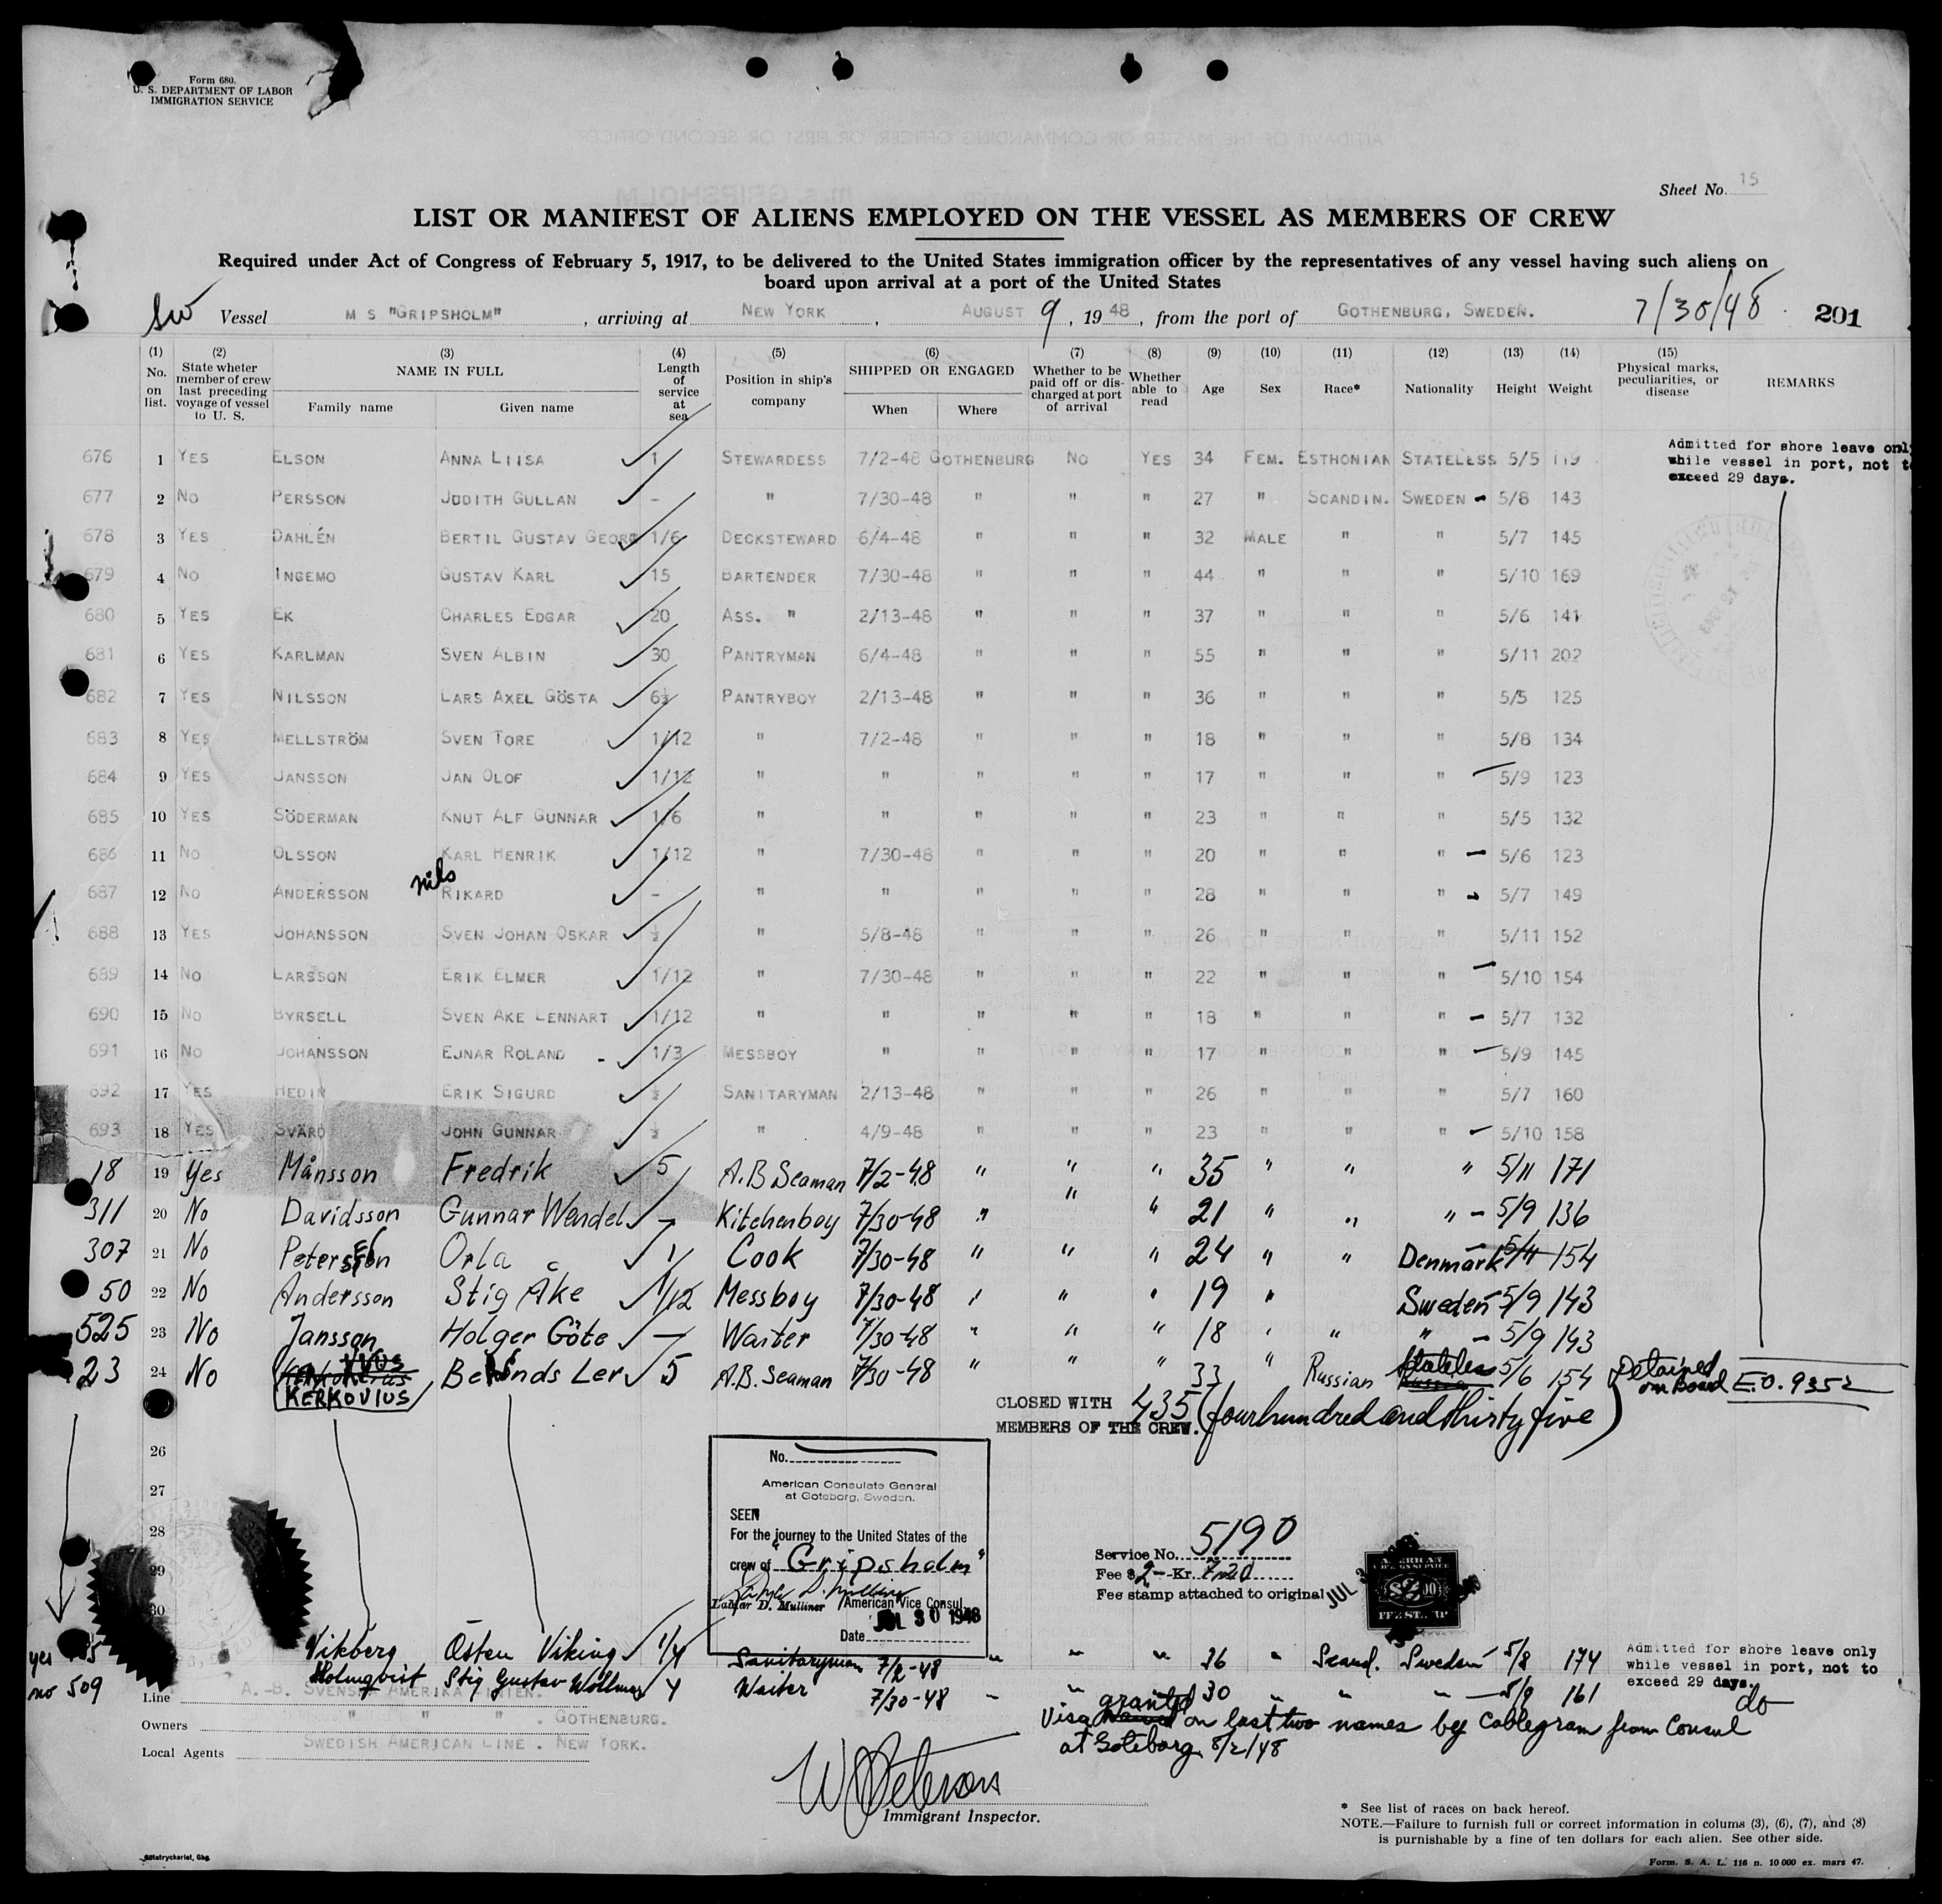 Form 680.
U. S. DEPARTMENT OF LABOR
IMMIGRATION SERVICE
Sheet No. 15
LIST OR MANIFEST OF ALIENS EMPLOYED ON THE VESSEL AS MEMBERS OF CREW
Required under Act of Congress of February 5, 1917, to be delivered to the United States immigration officer by the representatives of any vessel having such aliens on
board upon arrival at a port of the United States
SW Vessel M S "GRIPSHOLM", arriving at NEW YORK, AUGUST 9, 1948, from the port of GOTHENBURG, SWEDEN. 7/30/48 201
(1) No. on list. (2) State wheter member of crew last preceding voyage of vessel to U. S. (3) NAME IN FULL Family name Given name (4) Length of service at sea (5) Position in ship's company (6) SHIPPED OR ENGAGED When Where (7) Whether to be paid off or discharged at port of arrival (8) Whether able to read (9) Age (10) Sex (11) Race* (12) Nationality (13) Height (14) Weight (15) Physical marks, peculiarities, or disease REMARKS
676 1 YES ELSON ANNA LIISA 1 STEWARDESS 7/2-48 GOTHENBURG NO YES 34 FEM. ESTHONIAN STATELESS 5/5 119 Admitted for shore leave only while vessel in port, not to exceed 29 days.
677 2 NO PERSSON JUDITH GULLAN - " 7/30-48 " " " 27 " SCANDIN. SWEDEN - 5/8 143
678 3 YES DAHLÉN BERTIL GUSTAV GEORG 1/6 DECKSTEWARD 6/4-48 " " " 32 MALE " " 5/7 145
679 4 NO INGEMO GUSTAV KARL 15 BARTENDER 7/30-48 " " " 44 " " " 5/10 169
680 5 YES EK CHARLES EDGAR 20 ASS. " 2/13-48 " " " 37 " " " 5/6 141
681 6 YES KARLMAN SVEN ALBIN 30 PANTRYMAN 6/4-48 " " " 55 " " " 5/11 202
682 7 YES NILSSON LARS AXEL GÖSTA 6½ PANTRYBOY 2/13-48 " " " 36 " " " 5/5 125
683 8 YES MELLSTRÖM SVEN TORE 1/12 " 7/2-48 " " " 18 " " " 5/8 134
684 9 YES JANSSON JAN OLOF 1/12 " " " " " 17 " " " 5/9 123
685 10 YES SÖDERMAN KNUT ALF GUNNAR 1/6 " " " " " 23 " " " 5/5 132
686 11 NO OLSSON KARL HENRIK 1/12 " 7/30-48 " " " 20 " " " - 5/6 123
687 12 NO ANDERSSON nils RIKARD - " " " " " 28 " " " - 5/7 149
688 13 YES JOHANSSON SVEN JOHAN OSKAR ½ " 5/8-48 " " " 26 " " " 5/11 152
689 14 NO LARSSON ERIK ELMER 1/12 " 7/30-48 " " " 22 " " " - 5/10 154
690 15 NO BYRSELL SVEN AKE LENNART 1/12 " " " " " 18 " " " - 5/7 132
691 16 NO JOHANSSON EJNAR ROLAND - 1/3 MESSBOY " " " " 17 " " " - 5/9 145
692 17 YES HEDIN ERIK SIGURD ½ SANITARYMAN 2/13-48 " " " 26 " " " 5/7 160
693 18 YES SVÄRD JOHN GUNNAR ½ " 4/9-48 " " " 23 " " " - 5/10 158
18 19 Yes Månsson Fredrik 5 A.B Seaman 7/2-48 " " " 35 " " " 5/11 171
311 20 No Davidsson Gunnar Wendel - Kitchenboy 7/30-48 " " " 21 " " " - 5/9 136
307 21 No Petersen Orla 1 Cook 7/30-48 " " " 24 " " Denmark 5/11 154
50 22 No Andersson Stig Åke 1/12 Messboy 7/30-48 " " " 19 " Sweden 5/9 143
525 23 No Jansson Holger Göte - Waiter 7/30-48 " " " 18 " " " - 5/9 143
23 24 No KERKOVIUS Berends Ler 5 A.B. Seaman 7/30-48 " " " 33 " Russian Stateless 5/6 154 Detained on Board E.O. 9352
CLOSED WITH 435 (four hundred and thirty five)
MEMBERS OF THE CREW.
26
27
28
29
30
No.
American Consulate General
at Goteborg, Sweden.
SEEN
For the journey to the United States of the
crew of "Gripsholm"
Lamar D. Mulliner American Vice Consul
JUL 30 1948
Date
Service No. 5190
Fee $ 2-- Kr. 7.20
Fee stamp attached to original
AMERICAN
FEE STAMP
yes Vikberg Östen Viking 1/4 Sanitaryman 7/2-48 " " " 36 " Scand. Sweden 5/8 174 Admitted for shore leave only while vessel in port, not to exceed 29 days.
no 509 Holmqvist Stig Gustav Wollmar 4 Waiter 7/30-48 " " 30 " " " - 5/9 161 do
Line A.-B. SVENSKA AMERIKA LINIEN.
Owners " " " . GOTHENBURG.
Local Agents SWEDISH AMERICAN LINE . NEW YORK.
Visa granted on last two names by Cablegram from Consul
at Goteborg 8/2/48
W Peterson
Immigrant Inspector.
* See list of races on back hereof.
NOTE.—Failure to furnish full or correct information in colums (3), (6), (7), and (8)
is punishable by a fine of ten dollars for each alien. See other side.
Götatryckeriet, Gbg.
Form. S. A. L. 116 n. 10 000 ex. mars 47.